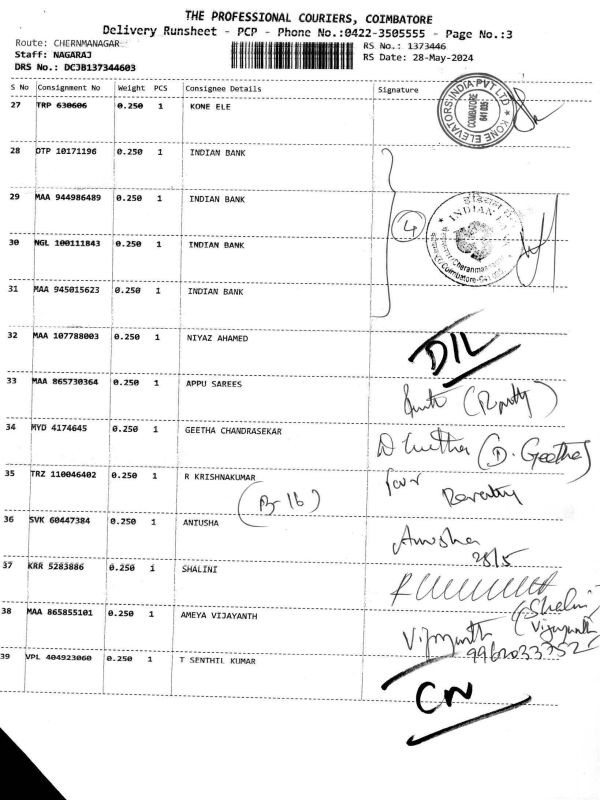 THE PROFESSIONAL COURIERS, COIMBATORE
Delivery Runsheet - PCP - Phone No.:0422-3505555 - Page No.:3
Route: CHERNMANAGAR
RS No.: 1373446
Staff: NAGARAJ
RS Date: 28-May-2024
DRS No.: DCJB137344603
S No Consignment No Weight PCS Consignee Details Signature
27 TRP 630606 0.250 1 KONE ELE
KONE ELEVATORS INDIA PVT LTD
COIMBATORE
28 DTP 10171196 0.250 1 INDIAN BANK
29 MAA 944986489 0.250 1 INDIAN BANK
4
INDIAN BANK
30 NGL 100111843 0.250 1 INDIAN BANK
31 MAA 945015623 0.250 1 INDIAN BANK
32 MAA 107788003 0.250 1 NIYAZ AHAMED
D/L
33 MAA 865730364 0.250 1 APPU SAREES
34 MYD 4174645 0.250 1 GEETHA CHANDRASEKAR
(D. Geetha)
35 TRZ 110046402 0.250 1 R KRISHNAKUMAR
(B-16)
Revathy
36 SVK 60447384 0.250 1 ANIUSHA
Anusha
28/5
37 KRR 5283886 0.250 1 SHALINI
(Shalini
38 MAA 865855101 0.250 1 AMEYA VIJAYANTH
Vijayanth (Vijayanth
39 VPL 404923060 0.250 1 T SENTHIL KUMAR
CN